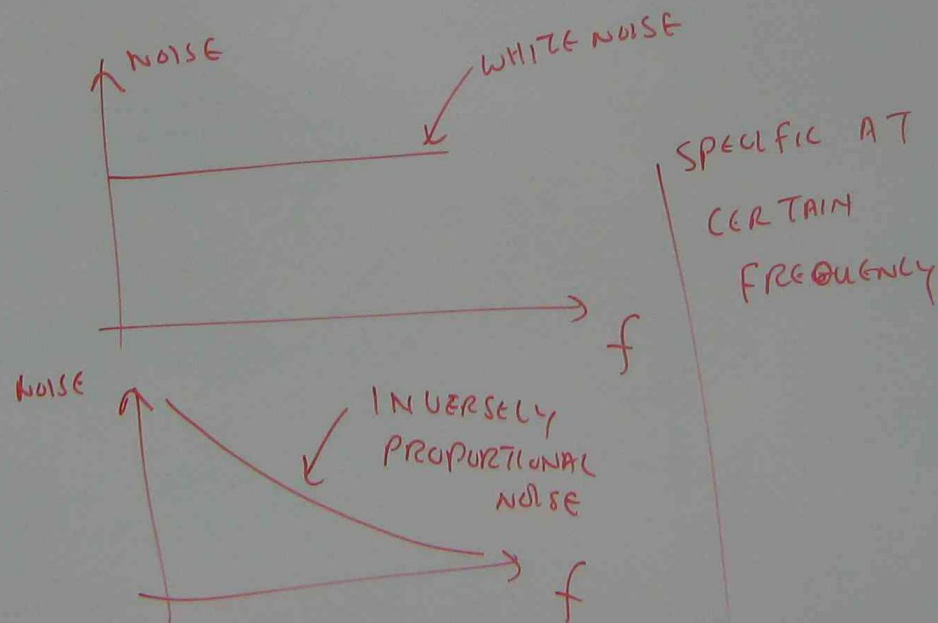 NOISE
WHITE NOISE
f
NOISE
INVERSELY
PROPORTIONAL
NOISE
f
SPECIFIC AT
CERTAIN
FREQUENCY